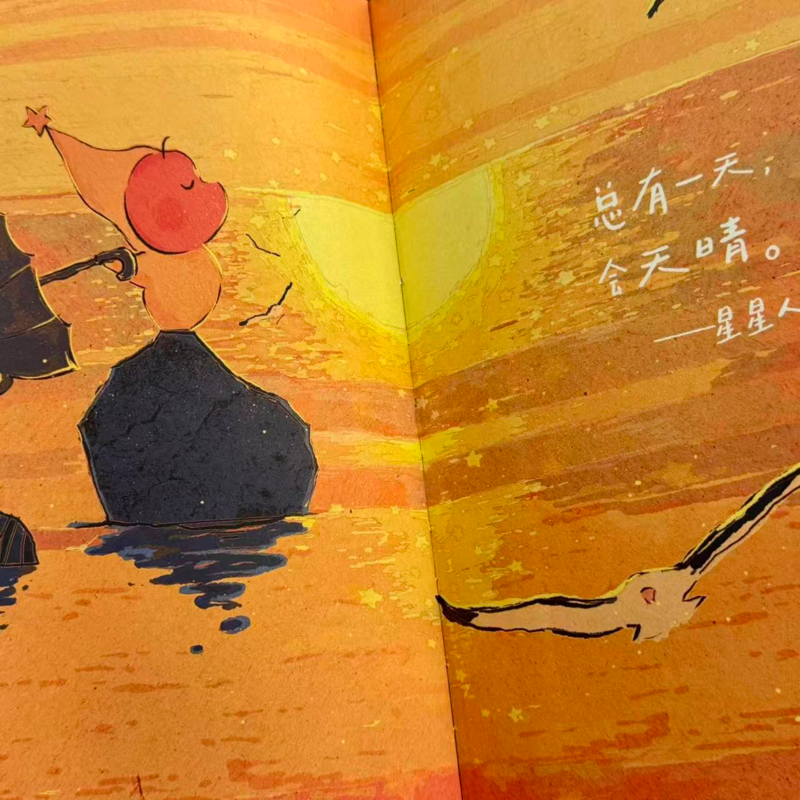 总有一天，
会天晴。
——星星人